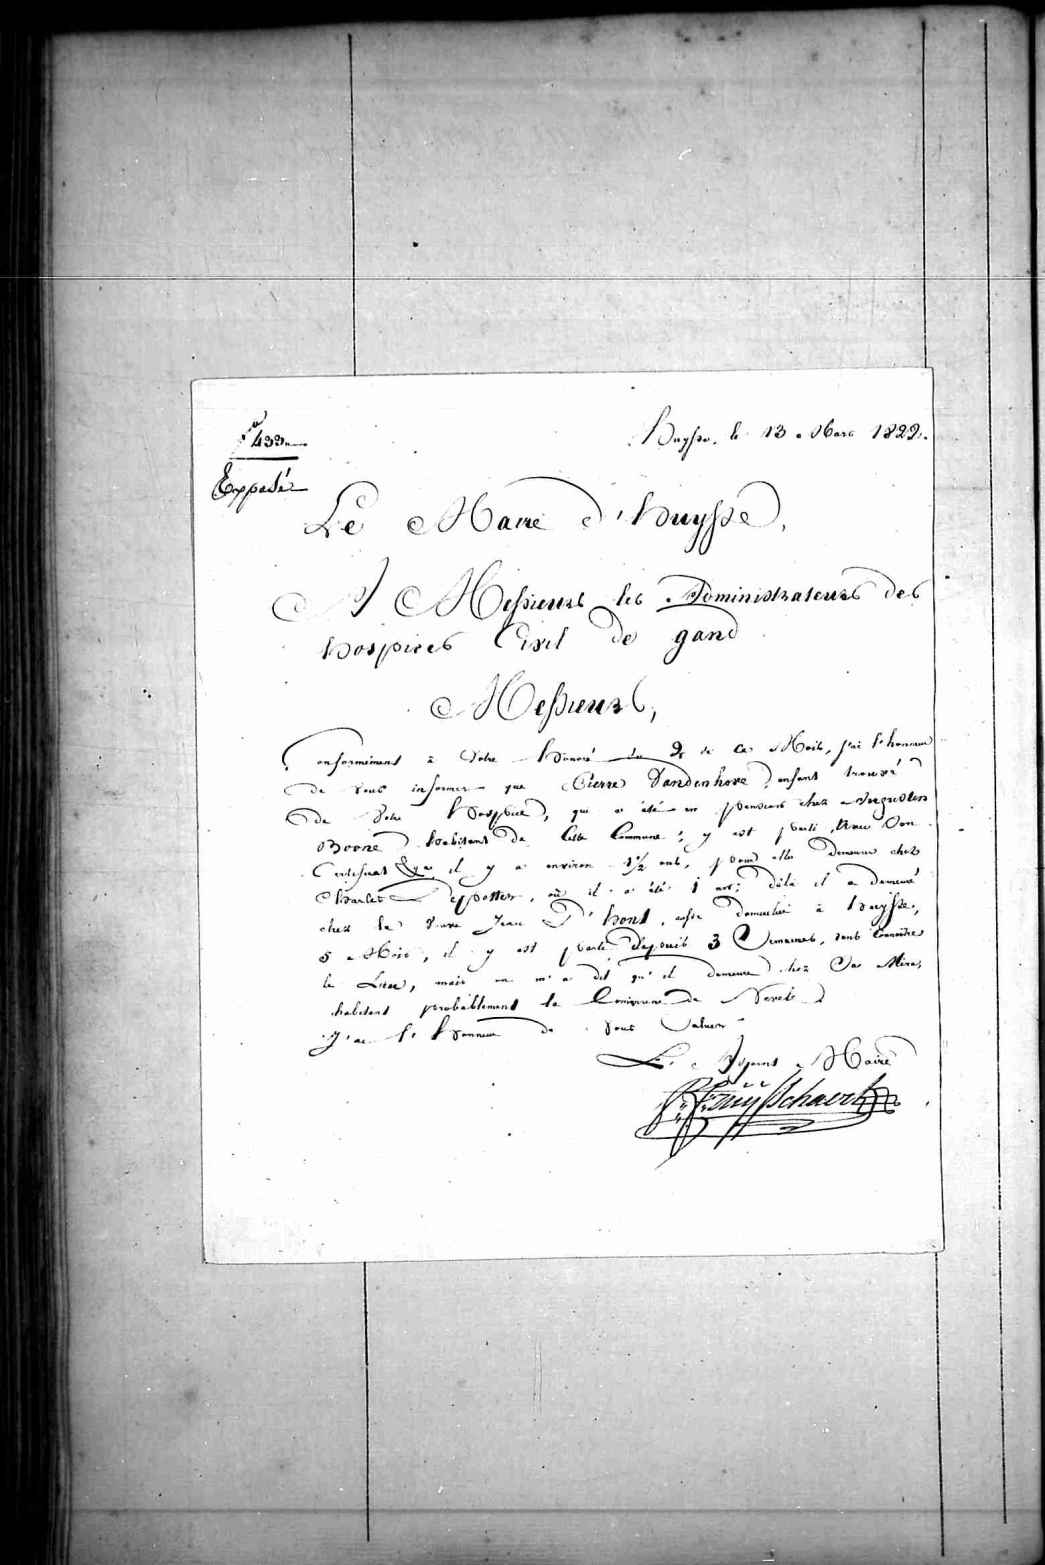 fo 433
Huysse, le 13 Mars 1822.
Exposé
Le Maire d'huysse,
A Messieurs les Administrateurs des
hospices Civil de gand
Messieurs,
Conformément à Votre honoré du 9 de ce Mois, j'ai l'honneur
de vous informer que Pierre Vandenhove enfant trouvé
de Votre hospice, qui a été en pension chez Augustin
Borré habitant de Cette Commune; y est parti, Avec Son
Certificat il y a environ 1½ ans, pour aller demeurer chez
Charles Depotter, où il a été 1 an; delà il a demeuré
chez la Veuve Jean D'hont, aussi domicilié à huysse,
5 Mois, il y est parti depuis 3 Semaines, sans Connoitre
le Lieu, mais on m'a dit qu'il demeure chez
habitant probablement la Commune de
J'ai l'honneur de vous Saluer
Le Adjoint Maire